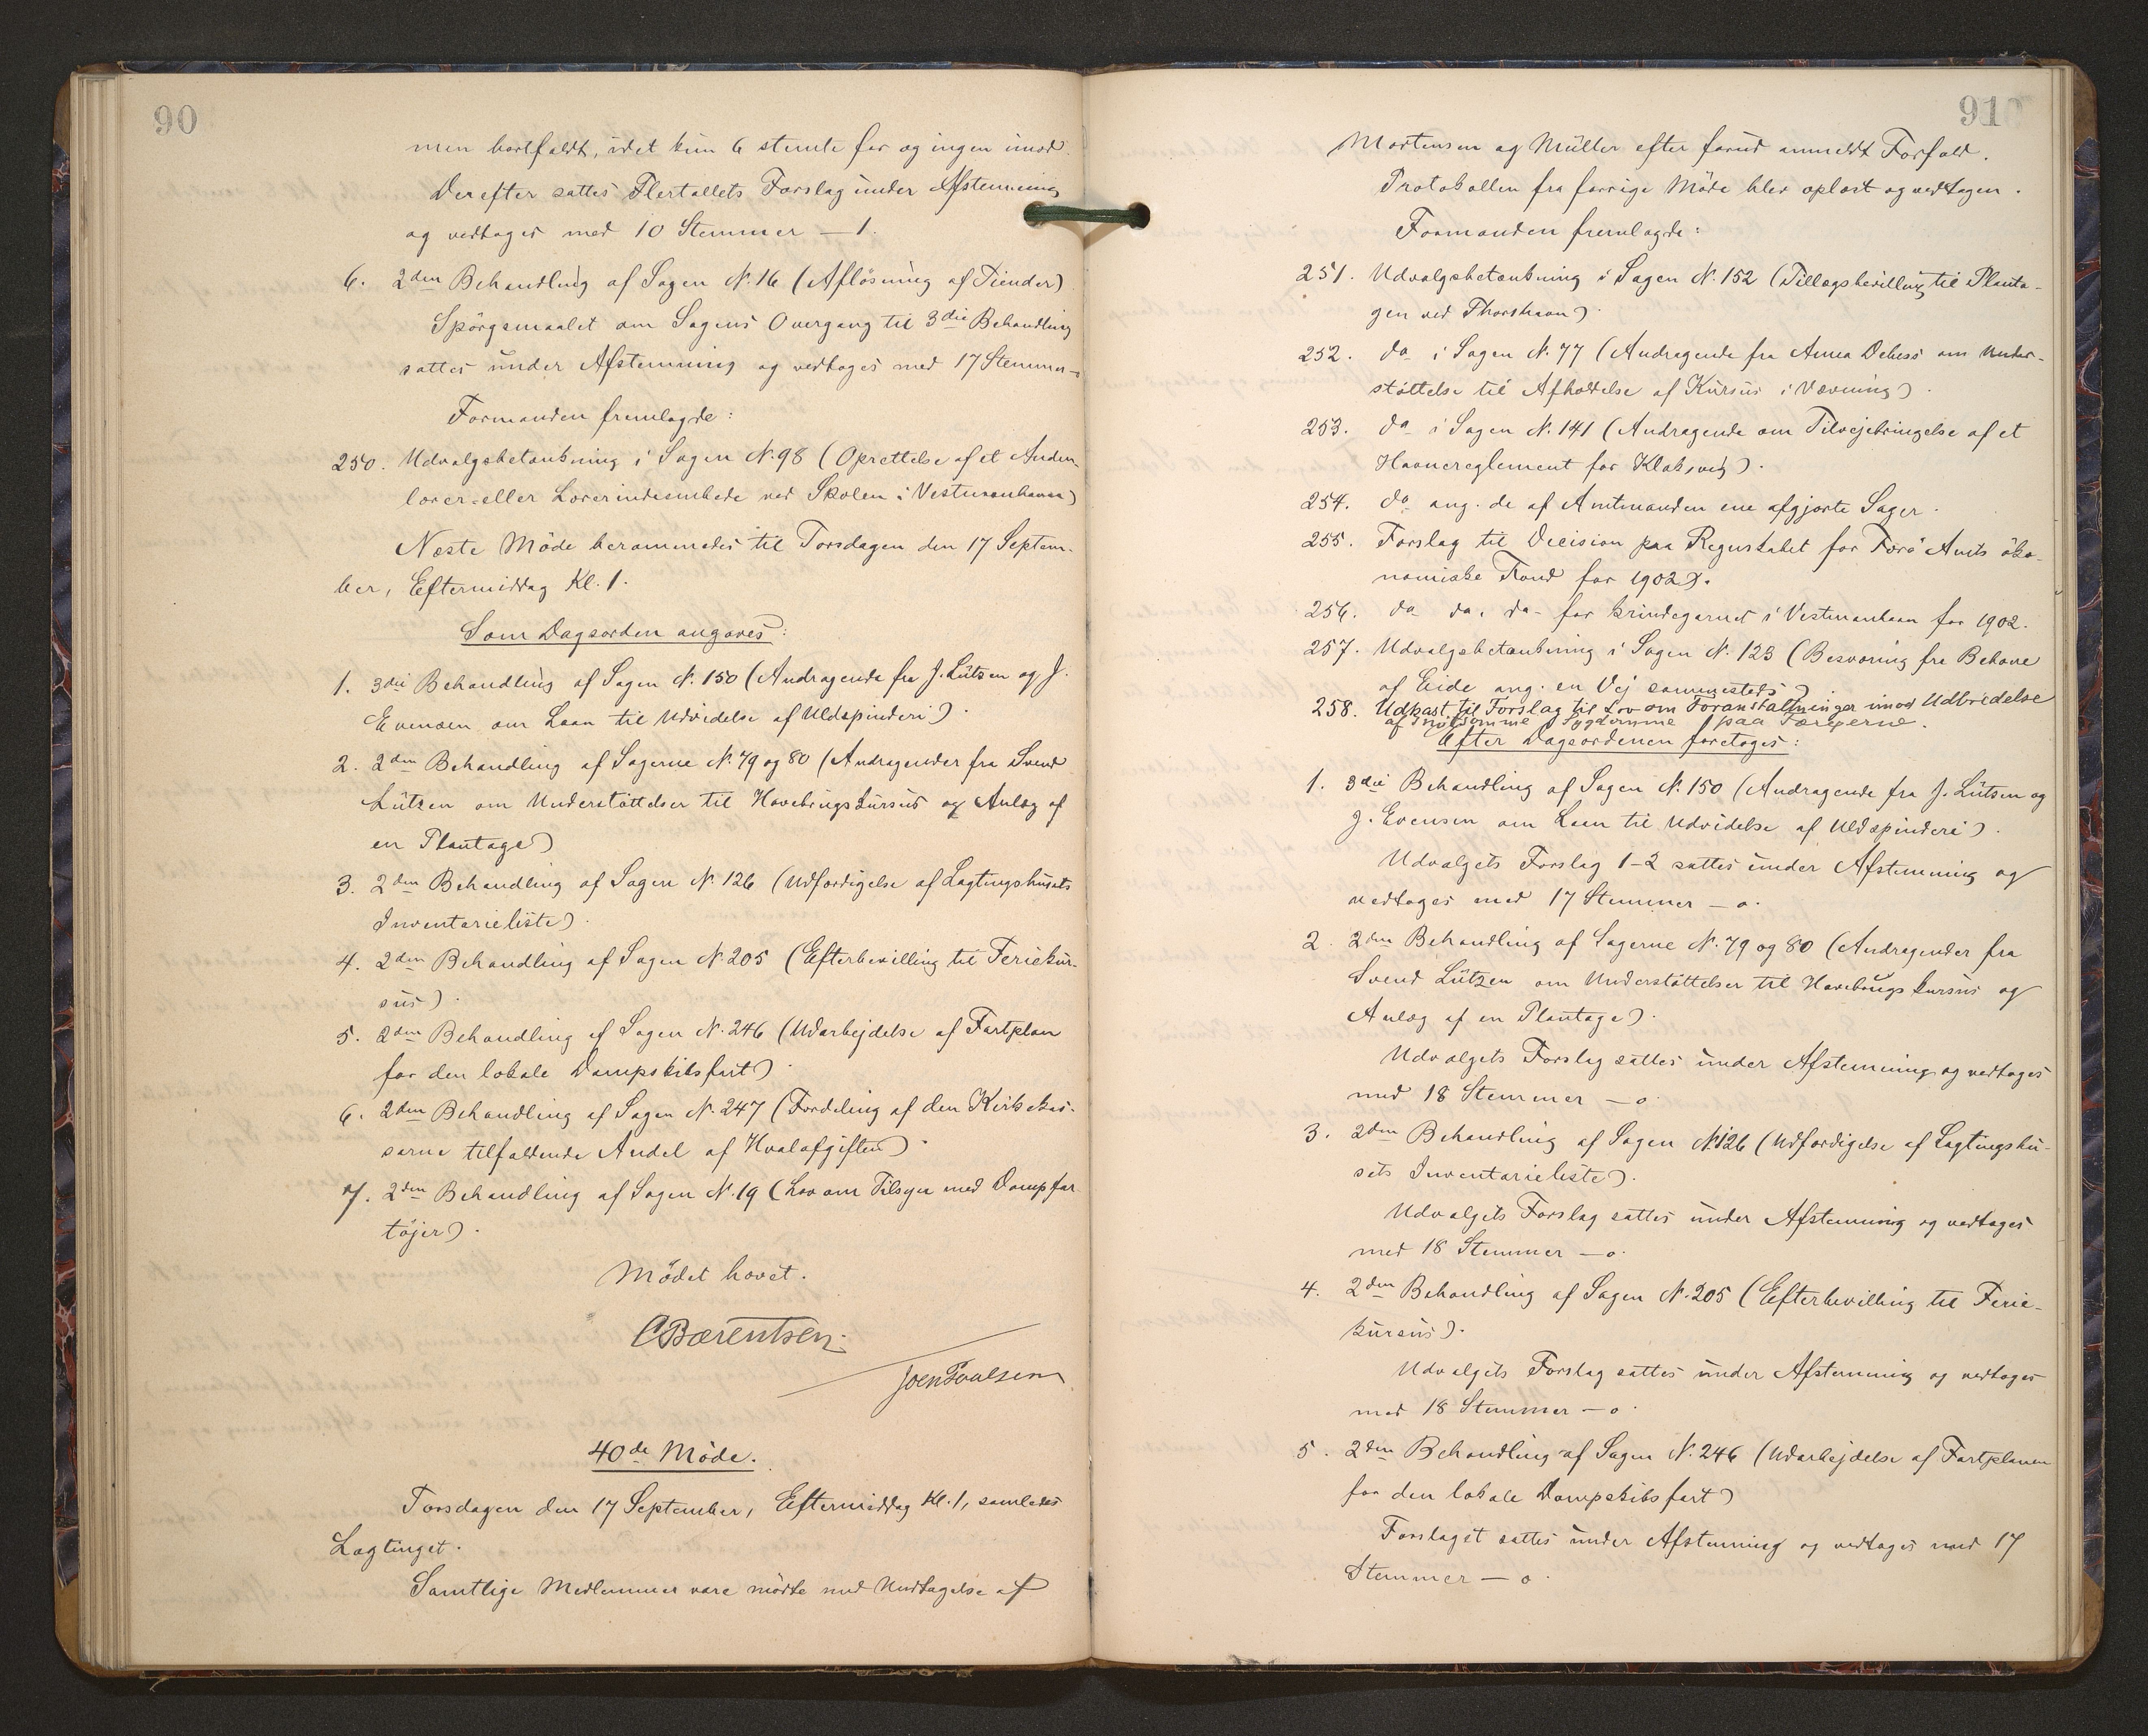 90
men bortfaldt, idet kun 6 stemte for og ingen imod.
Derefter sattes Flertallets Forslag under Afstemning
og vedtoges med 10 Stemmer — 1.
6. 2den Behandling af Sagen N. 16 (Aflösning af Tiender)
Spörgsmaalet om Sagens Overgang til 3die Behandling
sattes under Afstemning og vedtoges med 17 Stemmer – o
Formanden fremlagde:
250. Udvalgsbetænkning i Sagen N. 98 (Oprettelse af et Anden-
lærer- eller Lærerindeembede ved Skolen i Vestmanhavn)
Næste Möde berammedes til Torsdagen den 17 Septem-
ber, Eftermiddag Kl. 1.
Som Dagsorden angaves:
1. 3die Behandling af Sagen N. 150 (Andragende fra J. Lützen og J.
Evensen om Laan til Udvidelse af Uldspinderi).
2. 2den Behandling af Sagerne N. 79 og 80 (Andragender fra Svend
Lützen om Understöttelser til Havebrugskursus og Anlæg af
en Plantage)
3. 2den Behandling af Sagen N. 126 (Udfærdigelse af Lagtingshusets
Inventarieliste).
4. 2den Behandling af Sagen N. 205 (Efterbevilling til Feriekur-
sus).
5. 2den Behandling af Sagen N. 246 (Udarbejdelse af Fartplan
for den lokale Dampskibsfart).
6. 2den Behandling af Sagen N. 247 (Fordeling af den Kirkekas-
serne tilfaldende Andel af Hvalafgiften).
7. 2den Behandling af Sagen N. 19 (Lov om Tilsyn med Dampfar-
töjer).
Mödet hævet.
CBærentsen.
Joen Poulsen
40de Möde.
Torsdagen den 17 September, Eftermiddag Kl. 1, samledes
Lagtinget.
Samtlige Medlemmer vare mödte med Undtagelse af
91
Mortensen og Müller efter forud anmeldt Forfald.
Protokollen fra forrige Möde blev oplæst og vedtagen.
Formanden fremlagde:
251. Udvalgsbetænkning i Sagen N. 152 (Tillægsbevilling til Planta-
gen ved Thorshavn).
252. do i Sagen N. 77 (Andragende fra Anna Debess om Under-
støttelse til Afholdelse af Kursus i Vævning).
253. do i Sagen N. 141 (Andragende om Tilvejebringelse af et
Havnereglement for Klaksvig).
254. do ang. de af Amtmanden ene afgjorte Sager.
255. Forslag til Decision paa Regnskabet for Færö Amts öko-
nomiske Fond for 1902.
256. do do. do- for Grindegarnet i Vestmanhavn for 1902.
257. Udvalgsbetænkning i Sagen N. 123 (Besværing fra Beboere
af Eide ang. en Vej sammesteds)
258. Udkast til Forslag til Lov om Foranstaltninger imod Udbredelse
af smitsomme Sygdomme paa Færøerne.
Efter Dagsordenen foretoges:
1. 3die Behandling af Sagen N. 150 (Andragende fra J. Lützen og
J. Evensen om Laan til Udvidelse af Uldspinderi).
Udvalgets Forslag 1–2 sattes under Afstemning og
vedtoges med 17 Stemmer — o.
2. 2den Behandling af Sagerne N. 79 og 80 (Andragender fra
Svend Lützen om Understöttelser til Havebrugskursus og
Anlæg af en Plantage).
Udvalgets Forslag sattes under Afstemning og vedtoges
med 18 Stemmer — o.
3. 2den Behandling af Sagen N. 126 (Udfærdigelse af Lagtingshu-
sets Inventarieliste).
Udvalgets Forslag sattes under Afstemning og vedtoges
med 18 Stemmer — o.
4. 2den Behandling af Sagen N. 205 (Efterbevilling til Ferie-
kursus).
Udvalgets Forslag sattes under Afstemning og vedtoges
med 18 Stemmer — o.
5. 2den Behandling af Sagen N. 246 (Udarbejdelse af Fartplanen
for den lokale Dampskibsfart)
Forslaget sattes under Afstemning og vedtoges med 17
Stemmer — o.